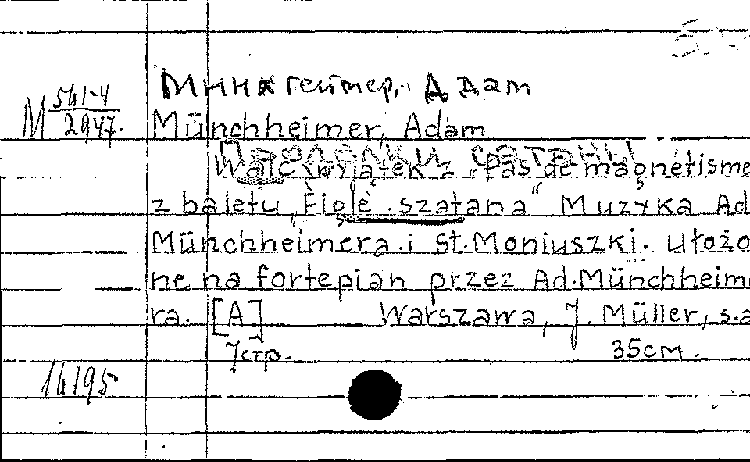 М 561-4 Минхгеймер, Адам
2947. Münchheimer, Adam
Walc wyjątek z „Pas de magnétisme
z baletu „Figlè szatana" Muzyka Ad
Münchheimera i St. Moniuszki. Ułożo
ne na fortepian przez Ad. Münchheime
ra. [A] Warszawa, J. Müller, s.a
7стр. 35см.
16195